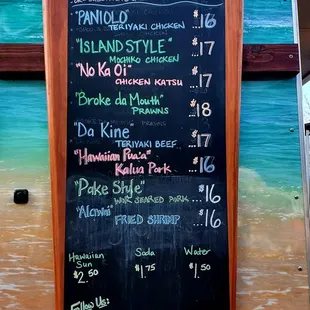 "PANIOLO" ...$16
TERIYAKI CHICKEN
"ISLAND STYLE" ...$17
MOCHIKO CHICKEN
"No Ka Oi" ...$17
CHICKEN KATSU
"Broke da Mouth" ...$18
PRAWNS
"Da Kine" ...$17
TERIYAKI BEEF
"Hawaiian Pua'a" ...$16
Kalua Pork
"Pake Style" ...$16
WOK SEARED PORK
"Alawai" ...$16
FRIED SHRIMP
Hawaiian Sun Soda Water
$2.50 $1.75 $1.50
Follow Us: